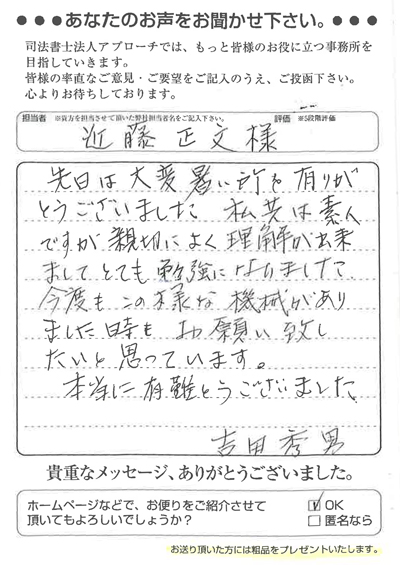 ●●●あなたのお声をお聞かせ下さい。●●●
司法書士法人アプローチでは、もっと皆様のお役に立つ事務所を
目指していきます。
皆様の率直なご意見・ご要望をご記入のうえ、ご投函下さい。
心よりお待ちしております。
担当者 ※貴方を担当させて頂いた弊社担当者名をご記入下さい。 評価 ※5段階評価
近藤正文様
先日は大変暑い所を有りが
とうございました 私共は素人
ですが親切によく理解が出来
ましてとても勉強になりました
今度もこの様な機械があり
ました時もお願い致し
たいと思っています。
本当に有難とうございました
吉田秀男
貴重なメッセージ、ありがとうございました。
ホームページなどで、お便りをご紹介させて
頂いてもよろしいでしょうか?
☑ OK
□ 匿名なら
お送り頂いた方には粗品をプレゼントいたします。